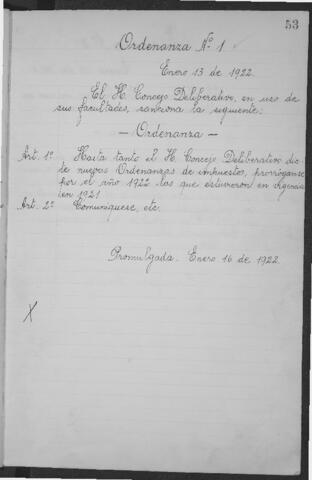 53
Ordenanza Nº 1
Enero 13 de 1922.
El H. Concejo Deliberativo, en uso de
sus facultades, sanciona la siguiente:
— Ordenanza —
Art. 1º Hasta tanto el H. Concejo Deliberativo dic-
te nuevas Ordenanzas de impuestos, prorróganse
por el año 1922 las que estuvieron en vigencia
en 1921.
Art. 2º Comuníquese, etc.
Promulgada. Enero 16 de 1922.
X